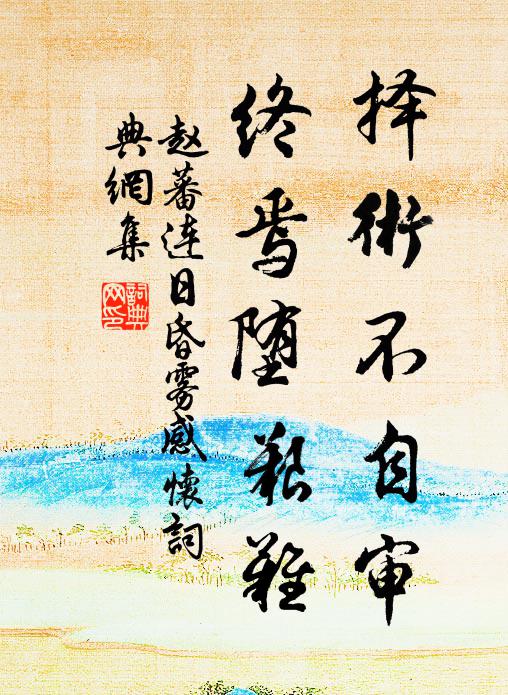 择术不自审
终焉堕艰难
赵蕃连日昏雾感怀词
典網集
詞典
网印